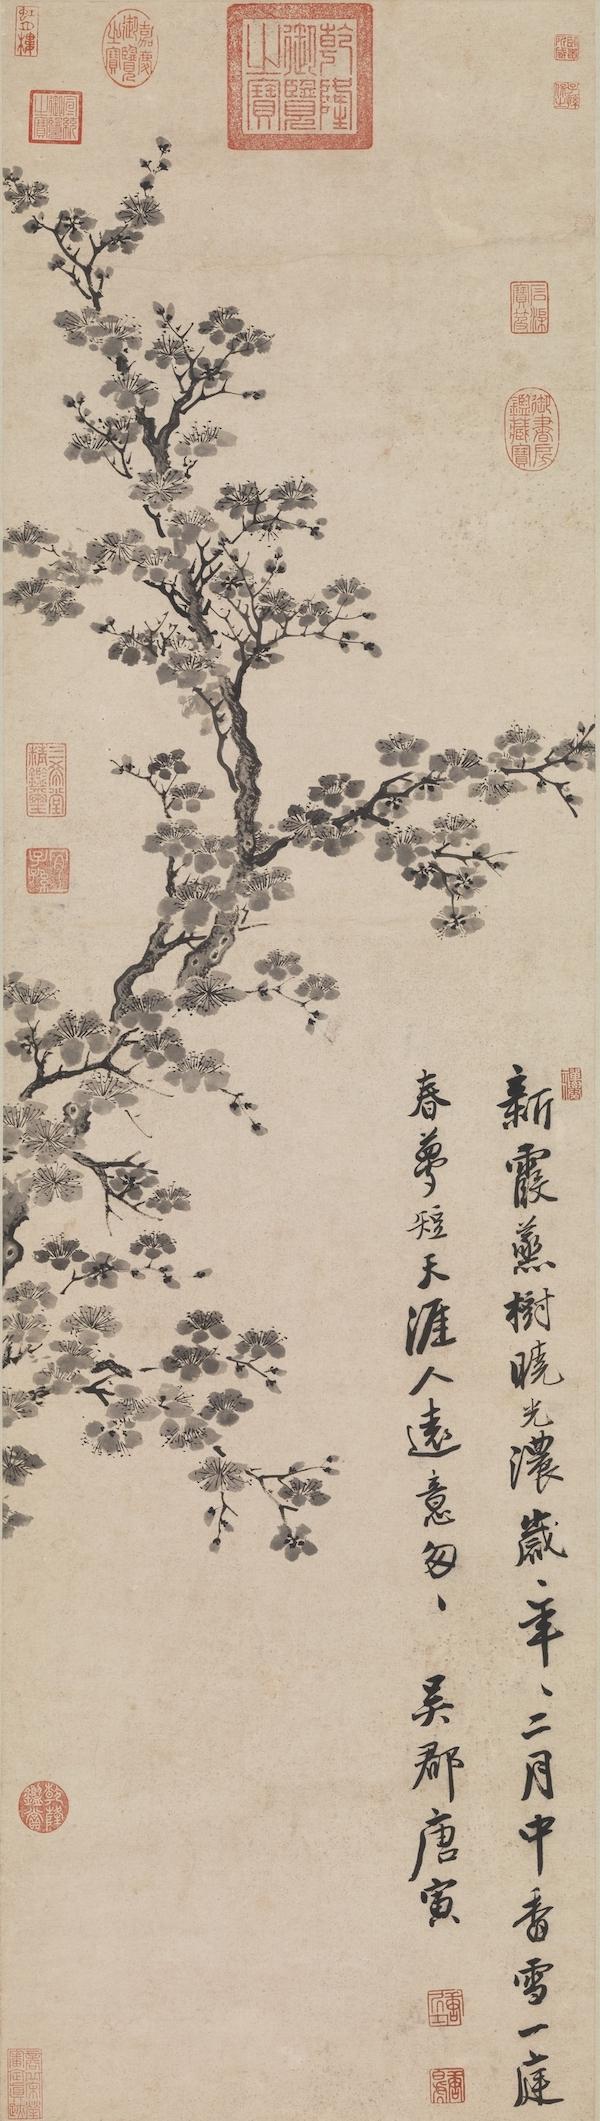 嘉慶御覽之寶
乾隆御覽之寶
宣統御覽之寶
石渠寶笈
御書房鑑藏寶
三希堂精鑑璽
宜子孫
新霞蒸樹曉光濃歲、年、二月中香雪一庭
春夢短天涯人遠意匆、 吳郡唐寅
乾隆鑑賞